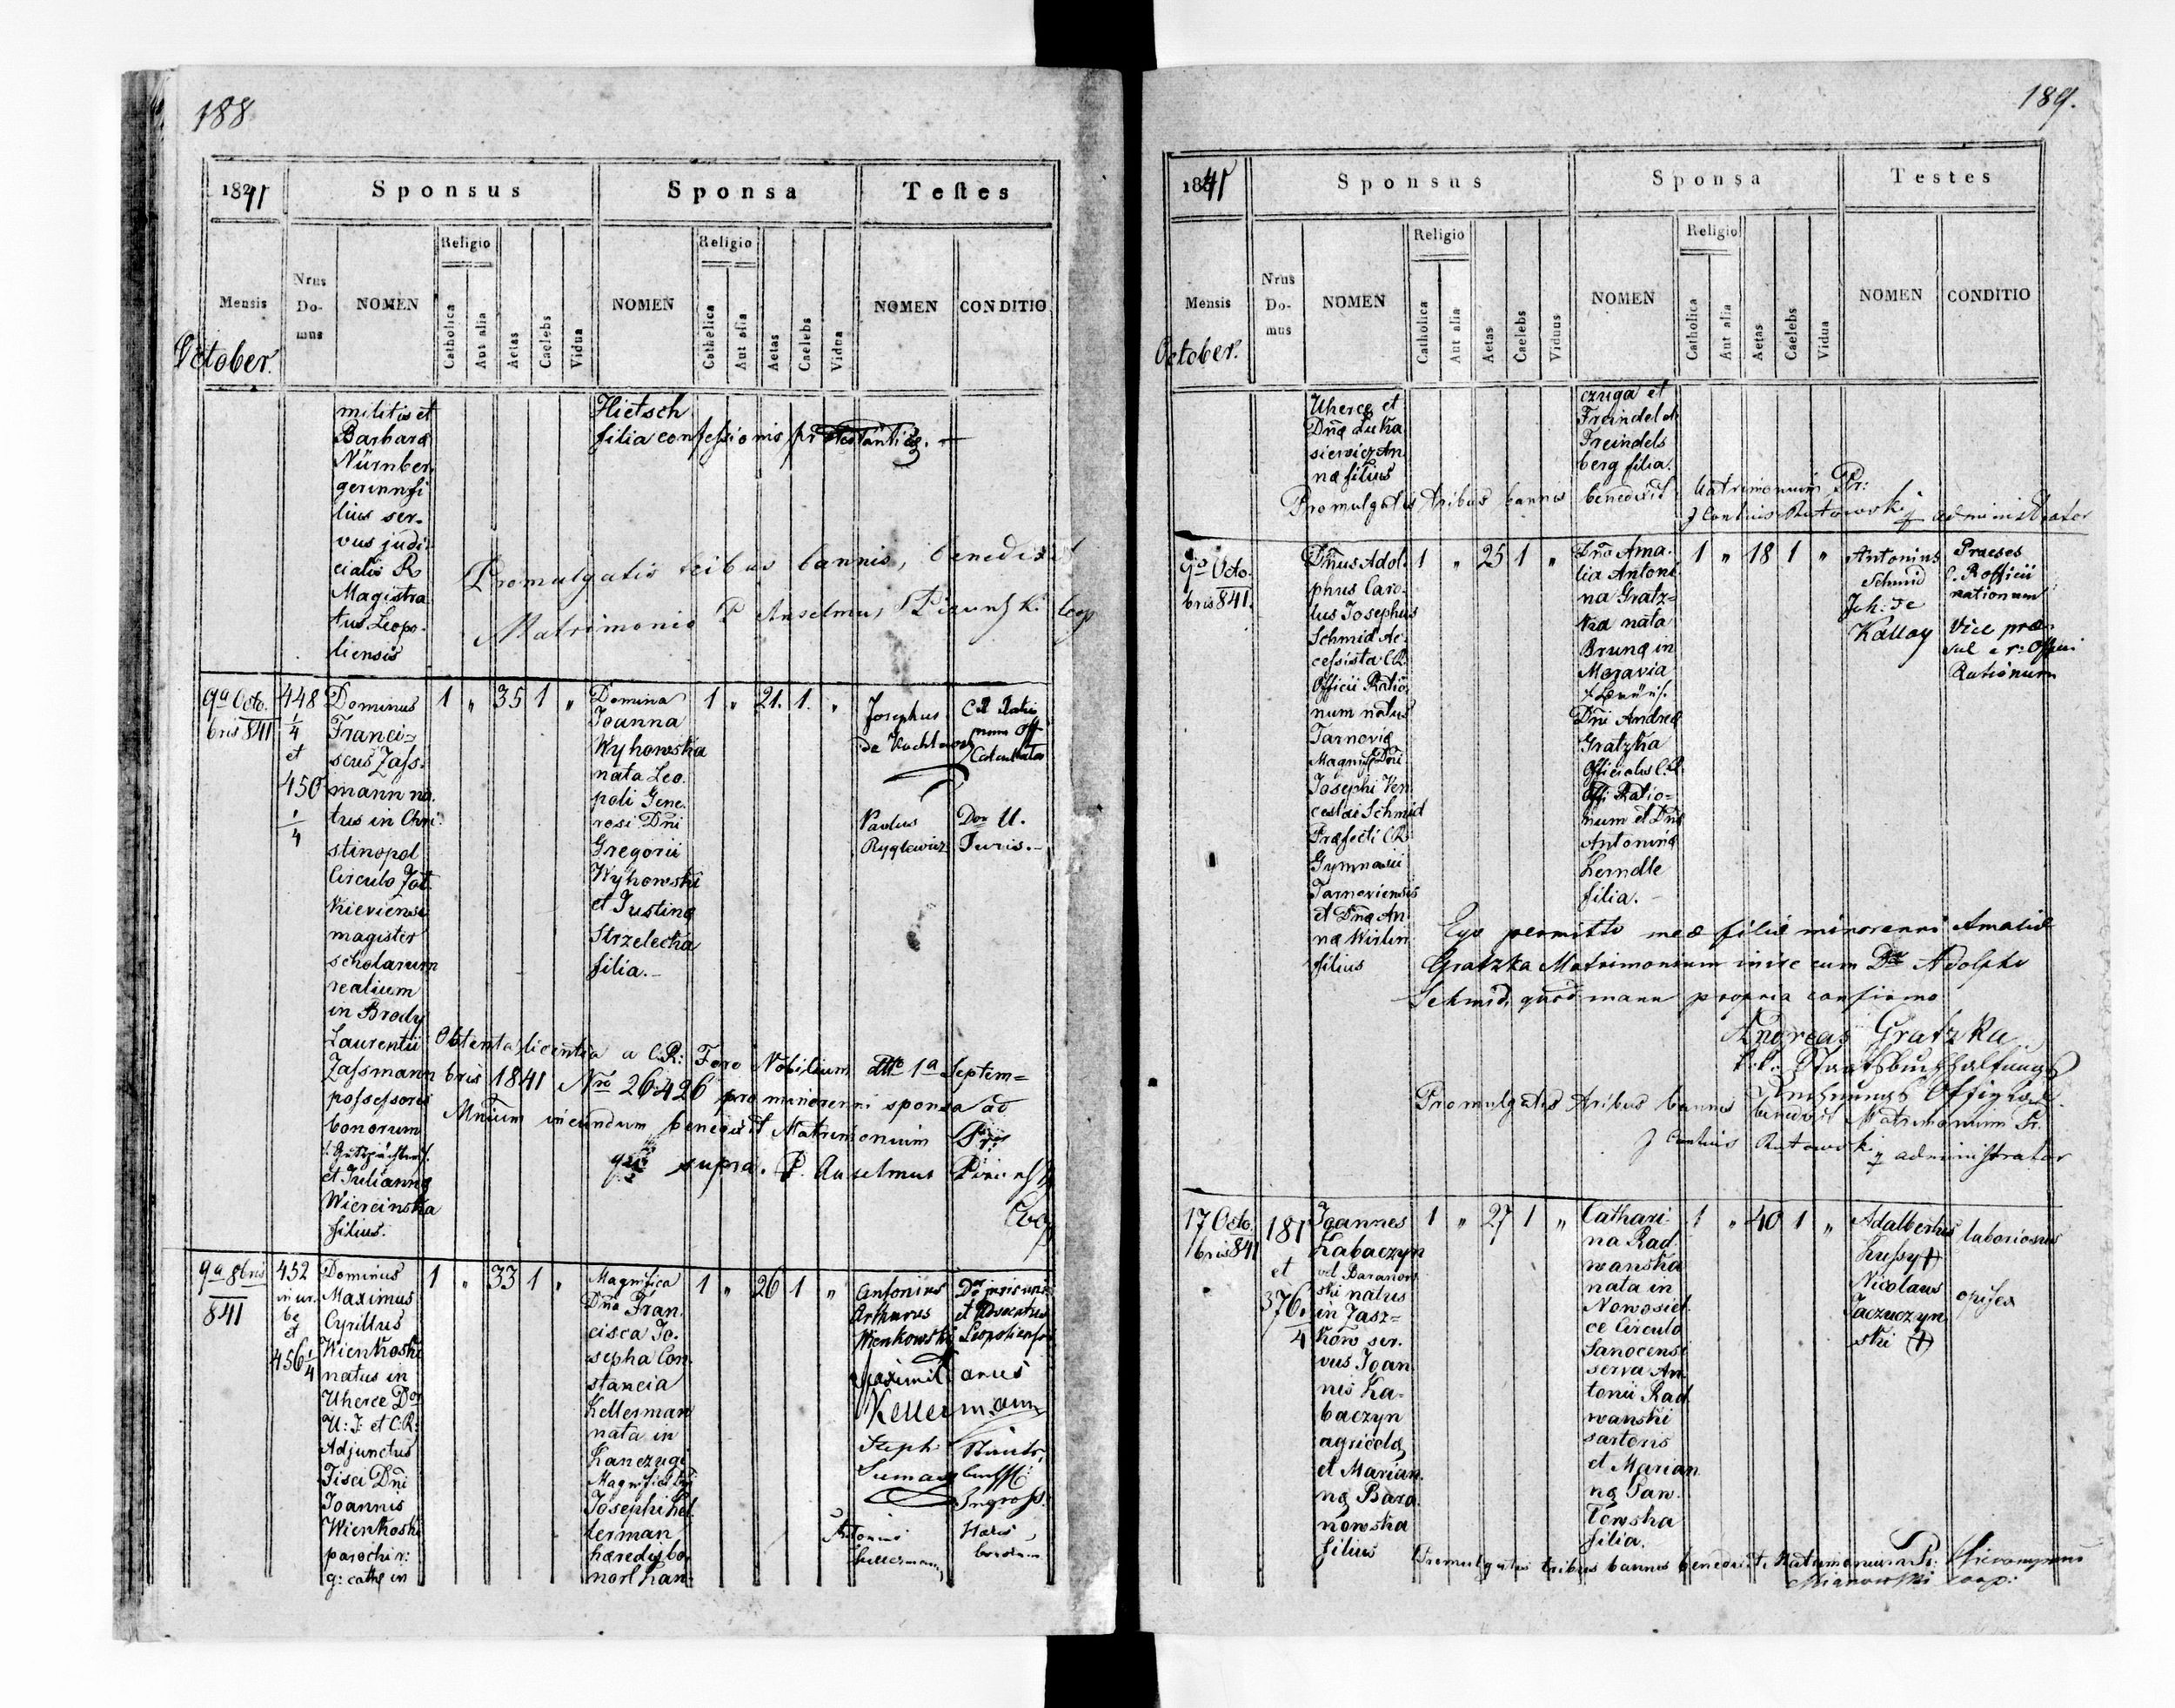 188
1841
Sponsus
Sponsa
Testes
Mensis
Nrus Do- mus
NOMEN
Religio
Catholica
Aut alia
Aetas
Caelebs
Vidua
NOMEN
Religio
Catholica
Aut alia
Aetas
Caelebs
Vidua
NOMEN
CONDITIO
October.
militis et
Barbara
Nürnber
gerinn fi
lius ser-
vus judi-
cialis R
Magistra
tus Leopo-
liensis
Hietsch
filia confessionis protestanticæ.
Promulgatis tribus bannis, benedixit
Matrimonio P Anselmus Coop
9a Octo.
bris 841
448
1/4
et
450
1/4
Dominus
Franci=
scus Zass-
mann na.
tus in Chri.
stinopol
Circulo Zol.
kieviensi
magister
scholarum
realium
in Brody
Laurentii
Zassmann
possessoris
bonorum
et Julianna
Wiercinska
filius.
1 " 35 1 "
Domina
Joanna
Wyhowska
nata Leo.
poli Gene.
rosi Dni
Gregorii
Wyhowski
et Justinæ
Strzelecka
filia.-
1 " 21. 1. "
Josephus
C R Ratio
num Off
Paulus
Ryglewicz
Dor U.
Juris.-
Obtenta licentia a C.R: Foro Nobilium dtto 1a Septem=
bris 1841 Nro 26426 pro minorenni sponsa ad
Mnium ineundum benedixit Matrimonium Pr:
supra. P. Anselmus
Coop
9a 8bris
841
452
in ur.
be
et
456 1/4
Dominus
Maximus
Cyrillus
Wienkoski
natus in
Uherce Dor
U: J: et C.R:
Adjunctus
Fisci Dni
Joannis
Wienkoski
parochi r:
g: cath in
1 " 33 1 "
Magnifica
Dna Fran.
cisca Jo.
sepha Con
stancia
Kellerman
nata in
Kanczugi
Magnifici Dni
Josephi Kel.
lerman
hæredis bo.
nor Kan-
1 " 26 1 "
Antonius
Arthurus
Wienkowski
Dor juris
et Advocatus
Leopoliensis
Maximilianus
Kellermann
Steph:
Ingross:
Antonius
Kellermann
189.
1841
Sponsus
Sponsa
Testes
Mensis
Nrus Do- mus
NOMEN
Religio
Catholica
Aut alia
Aetas
Caelebs
Viduus
NOMEN
Religio
Catholica
Aut alia
Aetas
Caelebs
Vidua
NOMEN
CONDITIO
October.
Uherce et
Dnæ Luka
siewicz An
næ filius
czuga et
Freindel de
Freindels
berg filia.
Promulgatis tribus bannis benedixit Matrimonium Pr:
J Cantius Rutowski administrator
9o Octo.
bris 841.
Dnus Adol.
phus Caro-
lus Josephus
Schmid Ac-
cessista C.R.
Officii Ratio
num natus
Tarnoviæ
Magnif Dni
Josephi Ven
ceslai Schmid
Præfecti C.R.
Gymnasii
Tarnoviensis
et Dnæ An
næ Wirlin
filius
1 " 25 1 "
Dna Ama-
lia Antoni
na Gratz=
ka nata
Brunæ in
Moravia
Dni Andreæ
Gratzka
Officialis C.R.
Offi Ratio=
num et Dnæ
Antoninæ
Kerndle
filia.-
1 " 18 1 "
Antonius
Schmid
Joh: de
Kállay
Praeses
C. R officii
rationum
Vice præ-
Rationum
Ego permitto meæ filiæ minorenni Amaliæ
Gratzka Matrimonium inire cum Dno Adolpho
Schmid, quod manu propria confirmo
Andreas Gratzka
k.k. Staatsbuchhaltungs
Rechnungs Offizial.
Promulgatis tribus bannis benedixit Matrimonium Pr.
J Cantius Rutowski administrator
17 Octo.
bris 841
181
et
376.
4
Joannes
Kabaczyn
vel Baranow
ski natus
in Zasz=
kow ser.
vus Joan
nis Ka-
baczyn
agricolæ
et Marian.
næ Bara.
nowska
filius
1 " 27 1 "
Cathari-
na Rad
wanska
nata in
Nowosiel
ce Circulo
Sanocensi
serva An.
tonii Rad
wanski
sartoris
et Marian
næ Paw.
Towska
filia.
1 " 40 1 "
Adalbertus
Kussy +
laboriosus
Nicolaus
Jaczuczyn
ski (+)
opifex
Promulgatis tribus bannis benedixit Matrimonium Pr: Hieronymus
Mianowski coop: